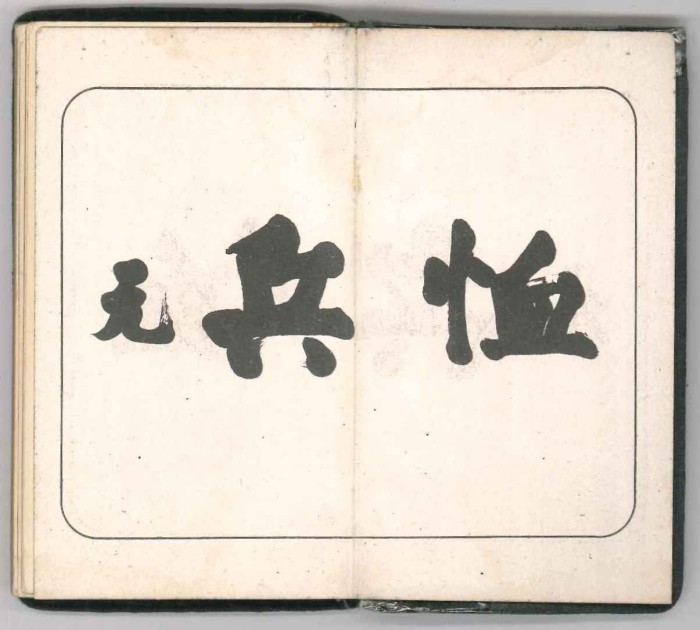 恤兵 元